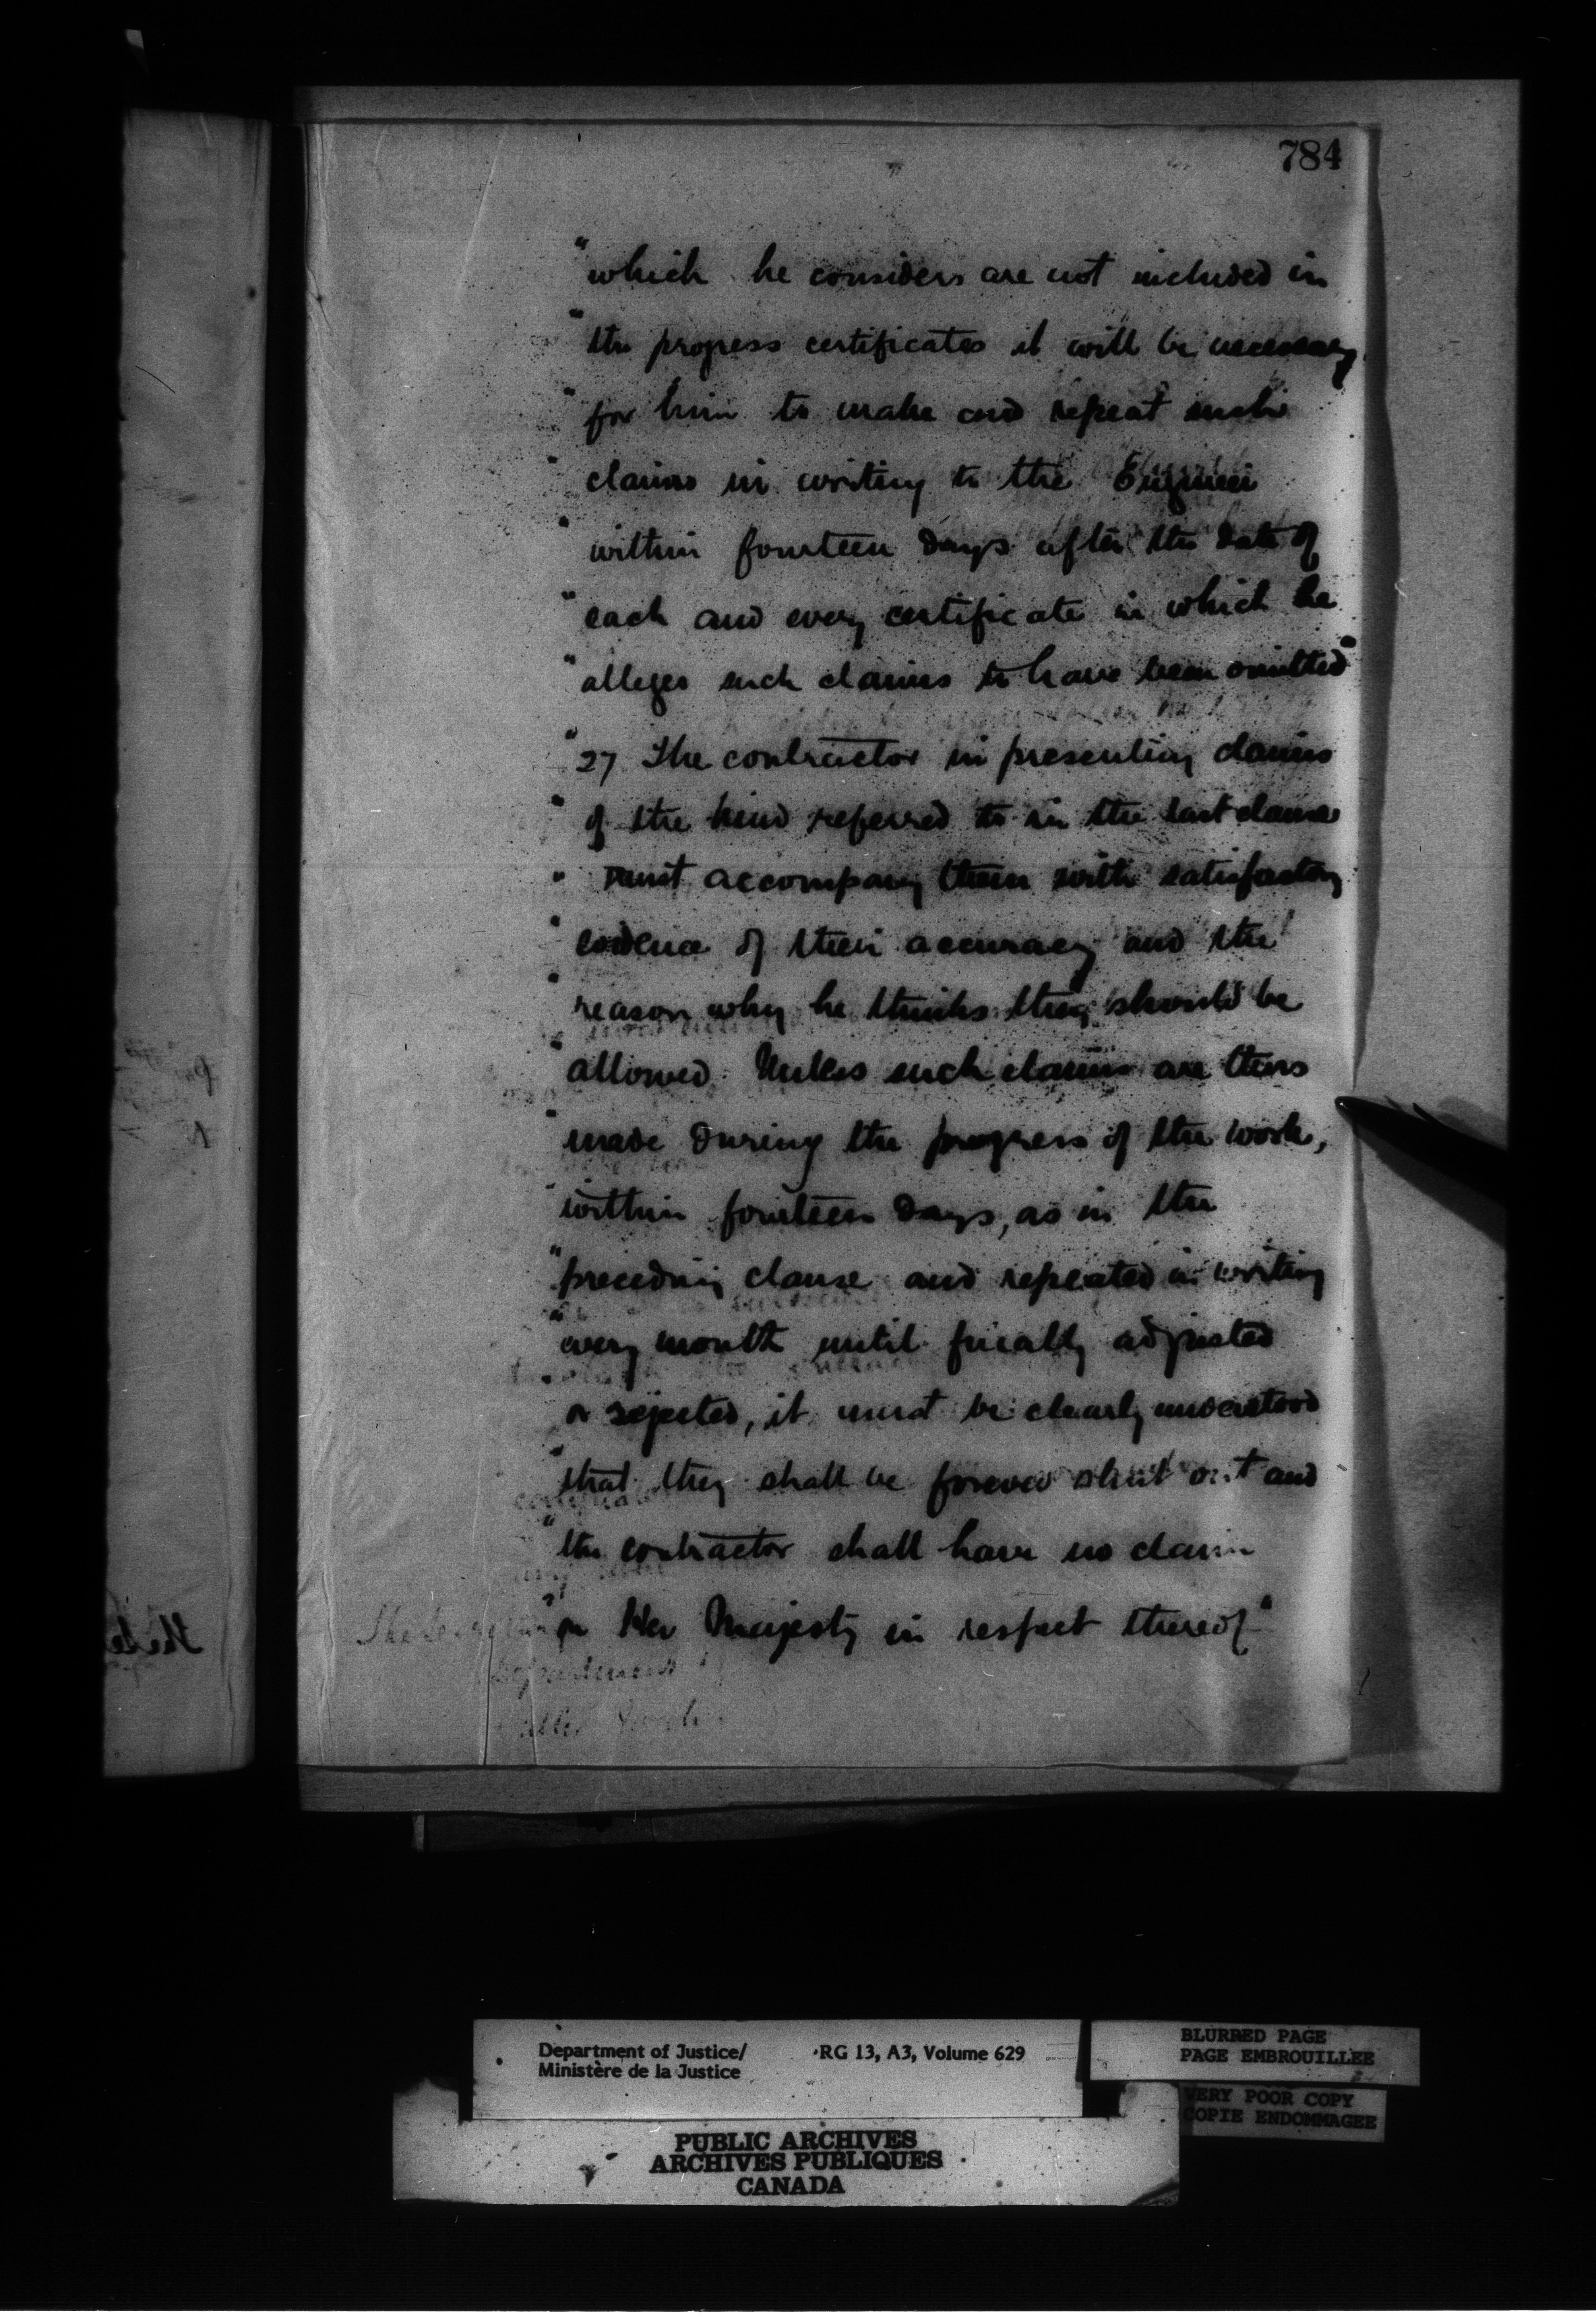 784
"which he considers are not included in
"the progress certificates it will be necessary
"for him to make and repeat such
"claims in writing to the Engineer
"within fourteen days after the date of
"each and every certificate in which he
"alleges such claims to have been omitted"
"27 The contractor in presenting claims
"of the kind referred to in the last clause
"must accompany them with satisfactory
"evidence of their accuracy and the
"reason why he thinks they should be
"allowed. Unless such claims are thus
"made during the progress of the work,
"within fourteen days, as in the
"preceding clause and repeated in writing
"every month until finally adjusted
"or rejected, it must be clearly understood
"that they shall be forever shut out and
"the contractor shall have no claim
"on Her Majesty in respect thereof"
Department of Justice/ RG 13, A3, Volume 629
Ministère de la Justice
BLURRED PAGE
PAGE EMBROUILLEE
VERY POOR COPY
COPIE ENDOMMAGEE
PUBLIC ARCHIVES
ARCHIVES PUBLIQUES
CANADA